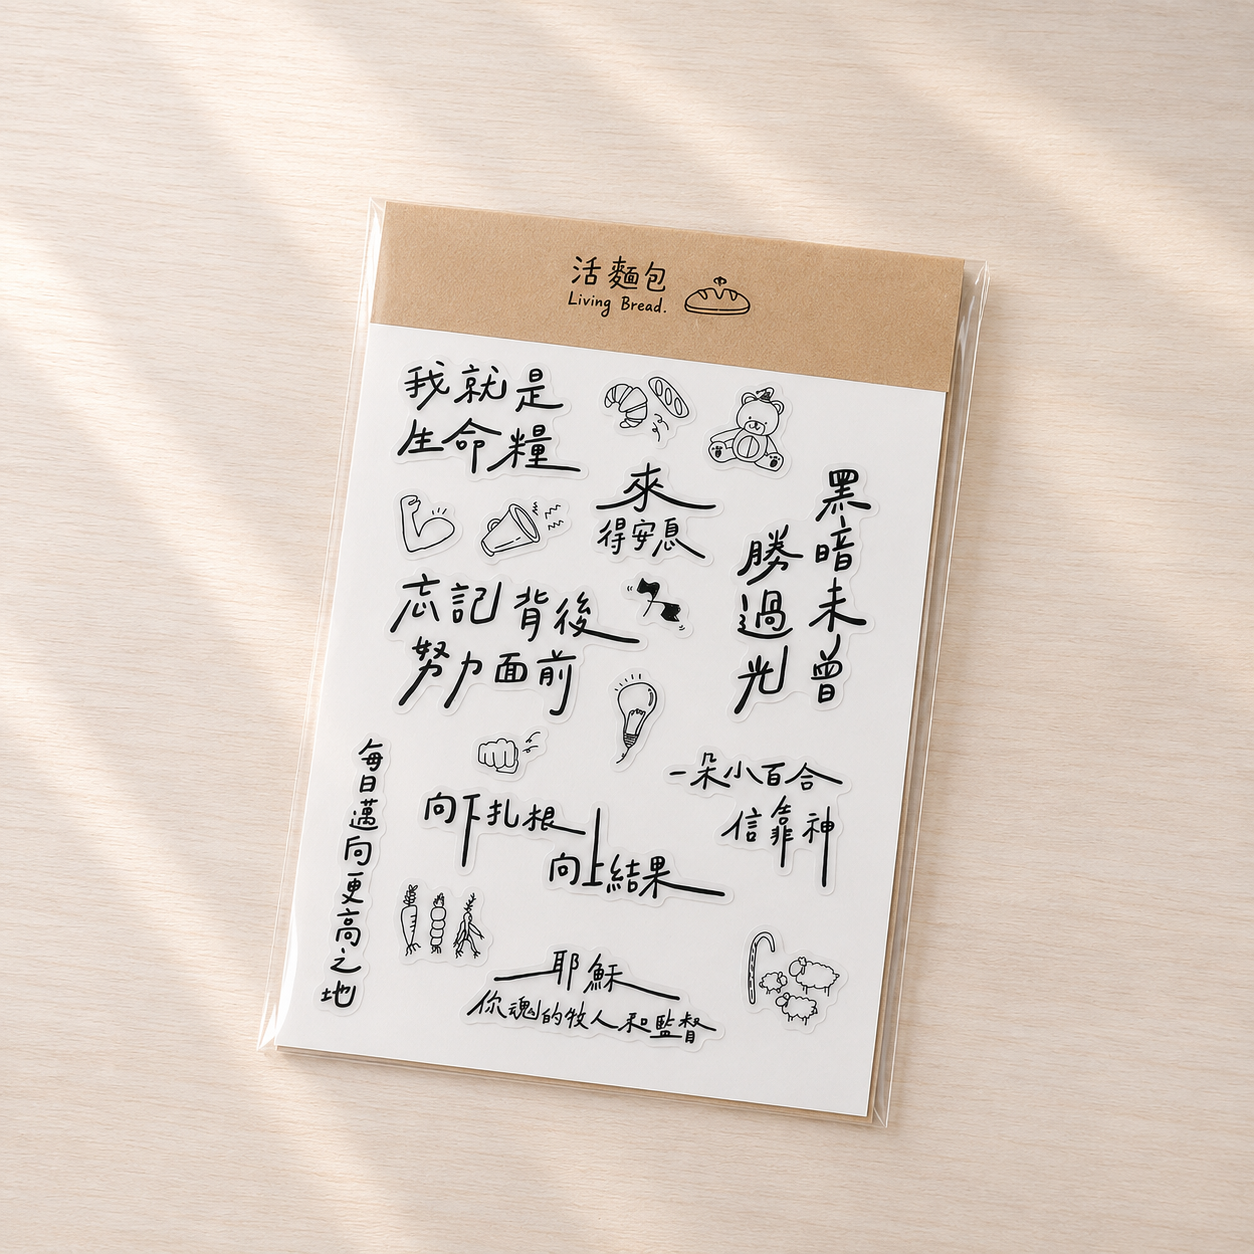 活麵包
Living Bread.
我就是
生命糧
來
得安息
黑暗未曾
勝過光
忘記背後
努力面前
每日邁向更高之地
一朵小百合
信靠神
向下扎根
向上結果
耶穌
你魂的牧人和監督